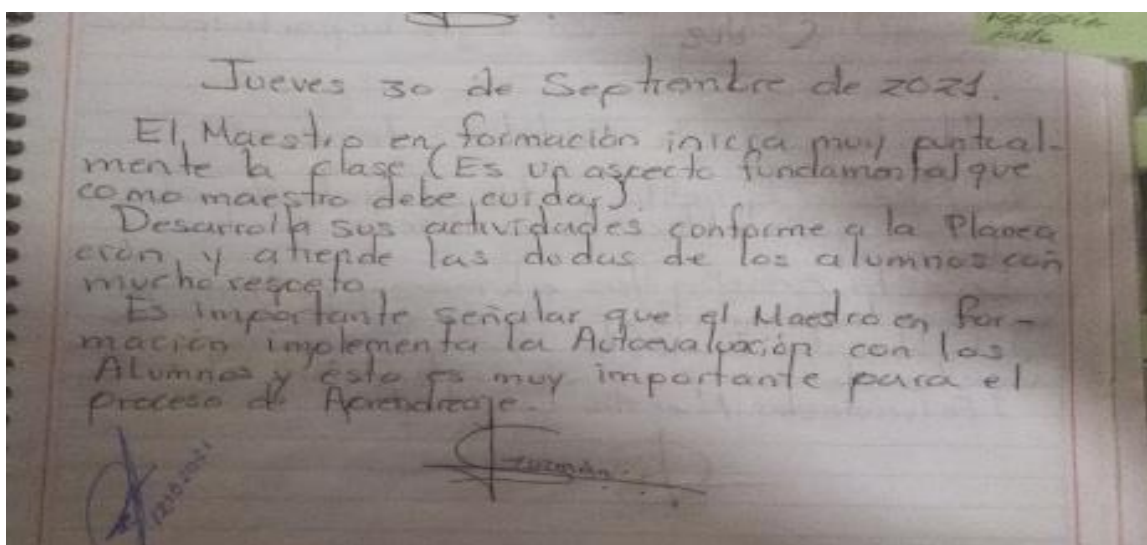 Jueves 30 de Septiembre de 2021.
El Maestro en formación inicia muy puntual-
mente la clase (Es un aspecto fundamental que
como maestro debe cuidar).
Desarrolla sus actividades conforme a la Planea
ción, y atiende las dudas de los alumnos con
mucho respeto.
Es importante señalar que el Maestro en for-
mación implementa la Autoevaluación con los
Alumnos y ésto es muy importante para el
proceso de Aprendizaje.
Guzmán